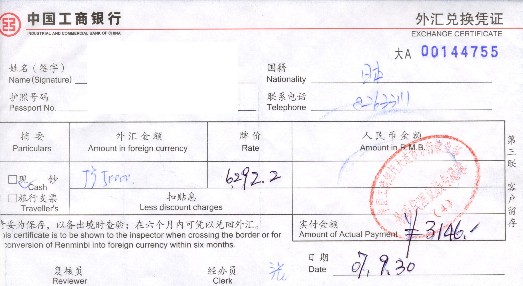 中国工商银行 外汇兑换凭证
INDUSTRIAL AND COMMERCIAL BANK OF CHINA EXCHANGE CERTIFICATE
大A 00144755
姓名(签字) 国籍 日本
Name(Signature) Nationality
护照号码 联系电话
Passport No. Telephone
摘要 外汇金额 牌价 人民币金额
Particulars Amount in foreign currency Rate Amount in R.M.B.
现钞 6292.2
Cash
旅行支票 扣贴息
Traveller's Less discount charges
妥为保存,以备出境时查验;在六个月内可凭以兑回外汇。 实付金额
his certificate is to be shown to the inspector when crossing the border or for Amount of Actual Payment ¥3146.-
conversion of Renminbi into foreign currency within six months.
复核员 经办员 日期 07.9.30
Reviewer Clerk Date
第三联 客户留存